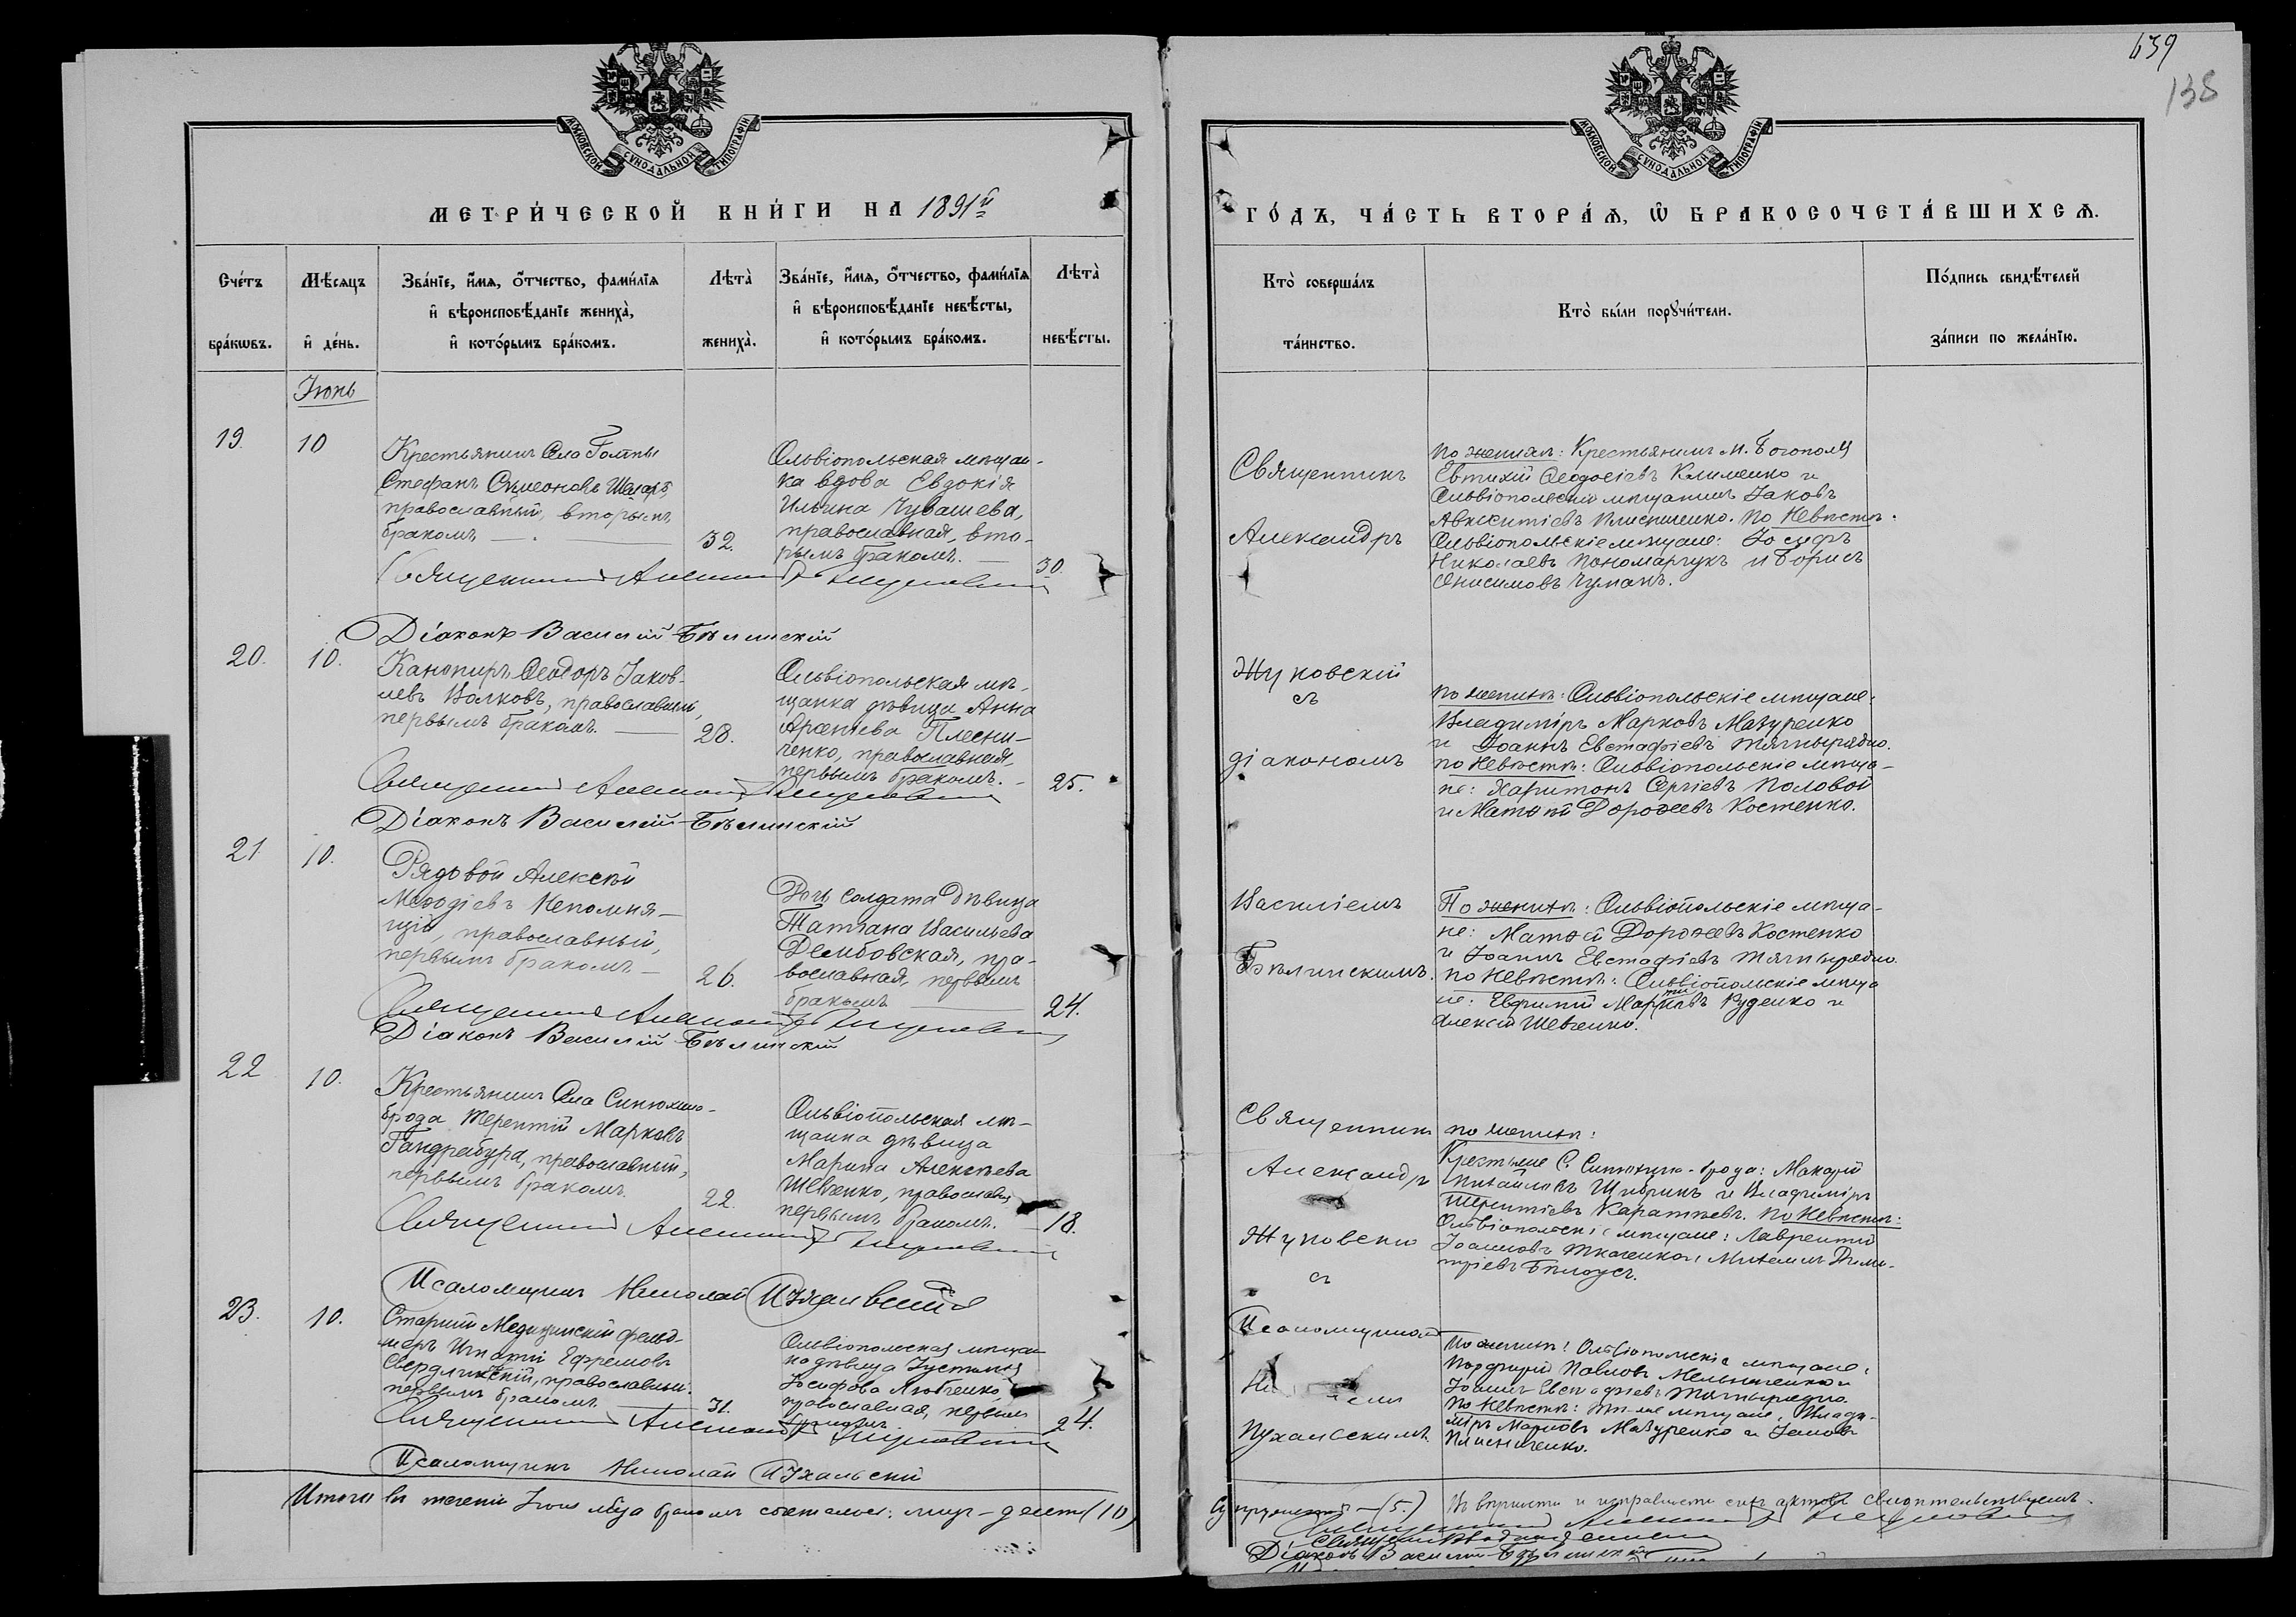 639
138
МОСКОВСКОЙ СѴНОДАЛЬНОЙ ТИПОГРАФІИ
МОСКОВСКОЙ СѴНОДАЛЬНОЙ ТИПОГРАФІИ
МЕТРИ́ЧЕСКОЙ КНИ́ГИ НА 1891й
ГО́ДЪ, ЧА́СТЬ ВТОРА́Ѧ, Ѽ БРАКОСОЧЕТА́ВШИХСѦ.
Сче́тъ
бра́кѡвъ.
Мѣ́сяцъ
и҆ де́нь.
Зва́нїе, и҆́мѧ, ѻ҆́тчество, фами́лїѧ
и҆ вѣроисповѣ́данїе жениха̀,
и҆ кото́рымъ бра́комъ.
Лѣта̀
жениха̀.
Зва́нїе, и҆́мѧ, ѻ҆́тчество, фами́лїѧ
и҆ вѣроисповѣ́данїе невѣ́сты,
и҆ кото́рымъ бра́комъ.
Лѣта̀
невѣ́сты.
Кто̀ соверша́лъ
та́инство.
Кто̀ бы́ли порꙋчи́тели.
По́дпись свидѣ́телей
за́писи по жела́нїю.
Іюнь
19.
10
Крестьянинъ Села Голты
Стефанъ Симеоновъ
православный, вторымъ
бракомъ
32.
Ольвіопольская мѣщан-
ка вдова Евдокія
Ильина Чубашева,
православная, вто-
рымъ бракомъ.
30.
Священникъ
Александръ
по женихѣ: Крестьянинъ М. Богополя
Евтихій Ѳеодосіевъ Клименко и
Ольвіопольскій мѣщанинъ Іаковъ
Авксентіевъ Плисниченко. по Невѣстѣ.
Ольвіопольскіе мѣщане: Іосифъ
Николаевъ Пономарчукъ и Борисъ
Онисимовъ Чуманъ.
Священникъ Александръ Жуковскій
Діаконъ Василій Бѣлинскій
20.
10.
Канониръ Ѳеодоръ Іаков-
левъ Волковъ, православный,
первымъ бракомъ.
28.
Ольвіопольская мѣ-
щанка дѣвица Анна
Арсеніева Плесни-
ченко, православная,
первымъ бракомъ.
25.
Жуковскій
съ
діакономъ
по женихѣ: Ольвіопольскіе мѣщане:
Владиміръ Марковъ Мазуренко
и Іоаннъ Евстафіевъ Тягнырядно.
по Невѣстѣ: Ольвіопольскіе мѣща-
не: Харитонъ Сергіевъ Половой
и Матѳей Дороѳеевъ Костенко.
Священникъ Александръ Жуковскій
Діаконъ Василій Бѣлинскій
21
10.
Рядовой Алексѣй
Меѳодіевъ Непомня-
щій, православный,
первымъ бракомъ
26.
Дочь солдата дѣвица
Татіана Васильева
Дембовская, пра-
вославная, первымъ
бракомъ
24.
Василіемъ
Бѣлинскимъ.
По женихѣ: Ольвіопольскіе мѣща-
не: Матѳей Дороѳеевъ Костенко
и Іоаннъ Евстафіевъ Тягнырядно.
по Невѣстѣ: Ольвіопольскіе мѣща
не: Евфимій Руденко и
Алексій Шевченко.
Священникъ Александръ Жуковскій
Діаконъ Василій Бѣлинскій
22
10.
Крестьянинъ Села Синюхино-
брода Терентій Марковъ
Гандрабура, православный,
первымъ бракомъ.
22.
Ольвіопольская мѣ-
щанка дѣвица
Марина Алексѣева
Шевченко, православ
первымъ бракомъ.
18.
Священникъ
Александръ
Жуковскій
съ
по женихѣ:
Крестьяне С. Синюхина-брода: Макарій
Михайловъ и Владиміръ
Терентіевъ Каратѣевъ. по Невѣстѣ:
Ольвіопольскіе мѣщане: Лаврентій
Іоанновъ Ткаченко и Михаилъ Дими-
тріевъ Бѣлоусъ.
Священникъ Александръ Жуковскій
Псаломщикъ Николай Пухальскій
23.
10.
Старшій Медицинскій фельд-
шеръ Игнатій Ефремовъ
Свердликскій, православный.
первымъ бракомъ.
31.
Ольвіопольская мѣщан
ка дѣвица Іустинія
Іосифова Любченко,
православная, первымъ
бракомъ
24.
Псаломщикомъ
Пухальскимъ
По женихѣ: Ольвіопольскіе мѣщане:
Порфирій Павловъ Мельниченко и
Іоаннъ Евстафіевъ Тягнырядно.
По Невѣстѣ: мѣщане: Влади-
міръ Марковъ Мазуренко и Іаковъ
Плисниченко.
Священникъ Александръ Жуковскій
Псаломщикъ Николай Пухальскій
Итого въ теченіи Іюня мѣца бракомъ сочеталось: лицъ - десять (10)
Супружествъ - (5.)
Въ вѣрности и исправности сихъ актовъ свидѣтельствуемъ.
Священникъ Александръ Жуковскій
Діаконъ Василій Бѣлинскій